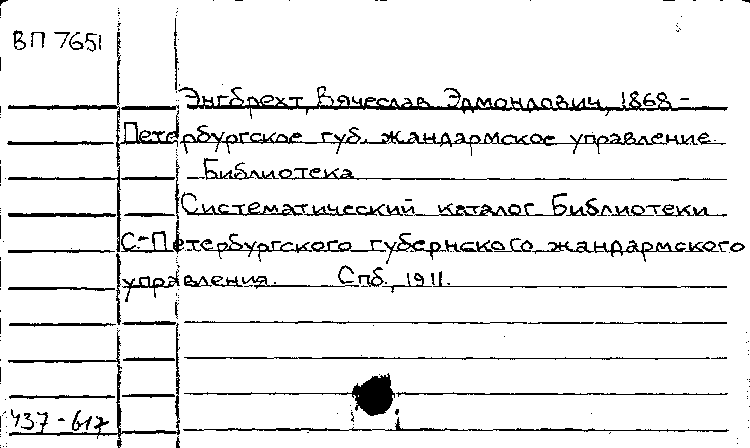 ВП 7651
Энгбрехт, Вячеслав Эдмондович, 1868 -
Петербургское губ. жандармское управление.
Библиотека
Систематический каталог Библиотеки
С.-Петербургского губернского жандармского
управления. Спб., 1911.
437-617